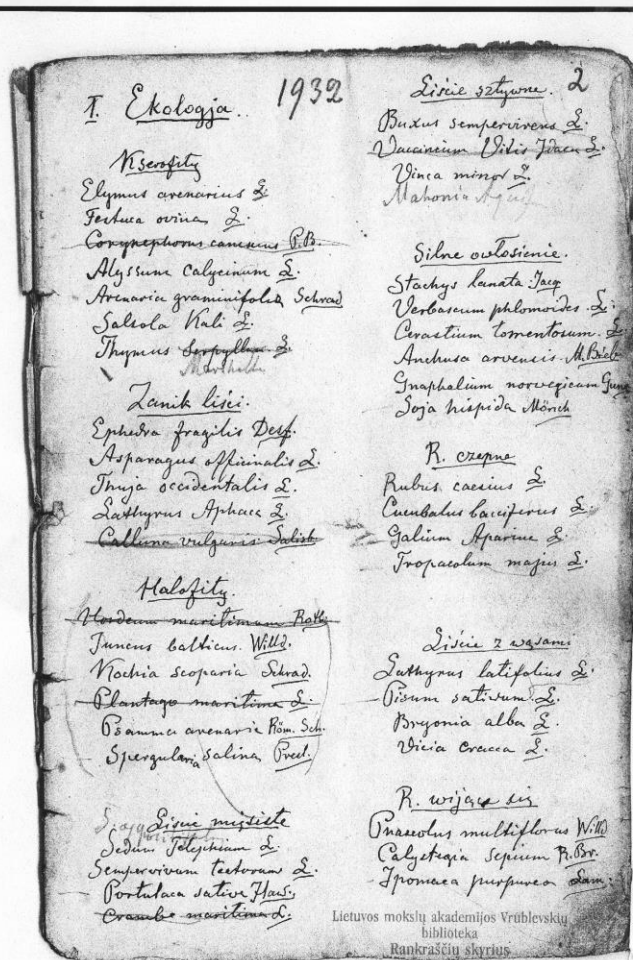 I. Ekologja.
1932
Kserofity
Elymus arenarius L.
Festuca ovina L.
Corynephorus canescens P.B.
Alyssum calycinum L.
Arenaria graminifolia Schrad
Salsola Kali L.
Thymus Serpyllum L.
Zanik liści.
Ephedra fragilis Desf.
Asparagus officinalis L.
Thuja occidentalis L.
Lathyrus Aphaca L.
Calluna vulgaris Salisb
Halofity.
Hordeum maritimum Roth
Juncus balticus. Willd.
Kochia scoparia Schrad.
Plantago maritima L.
Psamma arenaria Röm. Sch.
Spergularia salina Presl.
Liście mięsiste
Sedum Telephium L.
Sempervivum tectorum L.
Portulaca sativa Haw.
Crambe maritima L.
2
Liście sztywne.
Buxus sempervirens L.
Vaccinium Vitis Idaea L.
Vinca minor L.
Mahonia
Silne owłosienie.
Stachys lanata Jacq
Verbascum phlomoides. L.
Cerastium tomentosum. L
Anchusa arvensis. M. Bieb
Gnaphalium norvegicum Gunn
Soja hispida Mönch
R. czepne
Rubus caesius L.
Cucubalus bacciferus L.
Galium Aparine L.
Tropaeolum majus L.
Liście z wąsami
Lathyrus latifolius L.
Pisum sativum L.
Bryonia alba L.
Vicia cracca L.
R. wijące się
Phaseolus multiflorus Willd
Calystegia sepium R.Br.
Ipomaea purpurea Lam.
Lietuvos mokslų akademijos Vrublevskių
biblioteka
Rankraščių skyrius